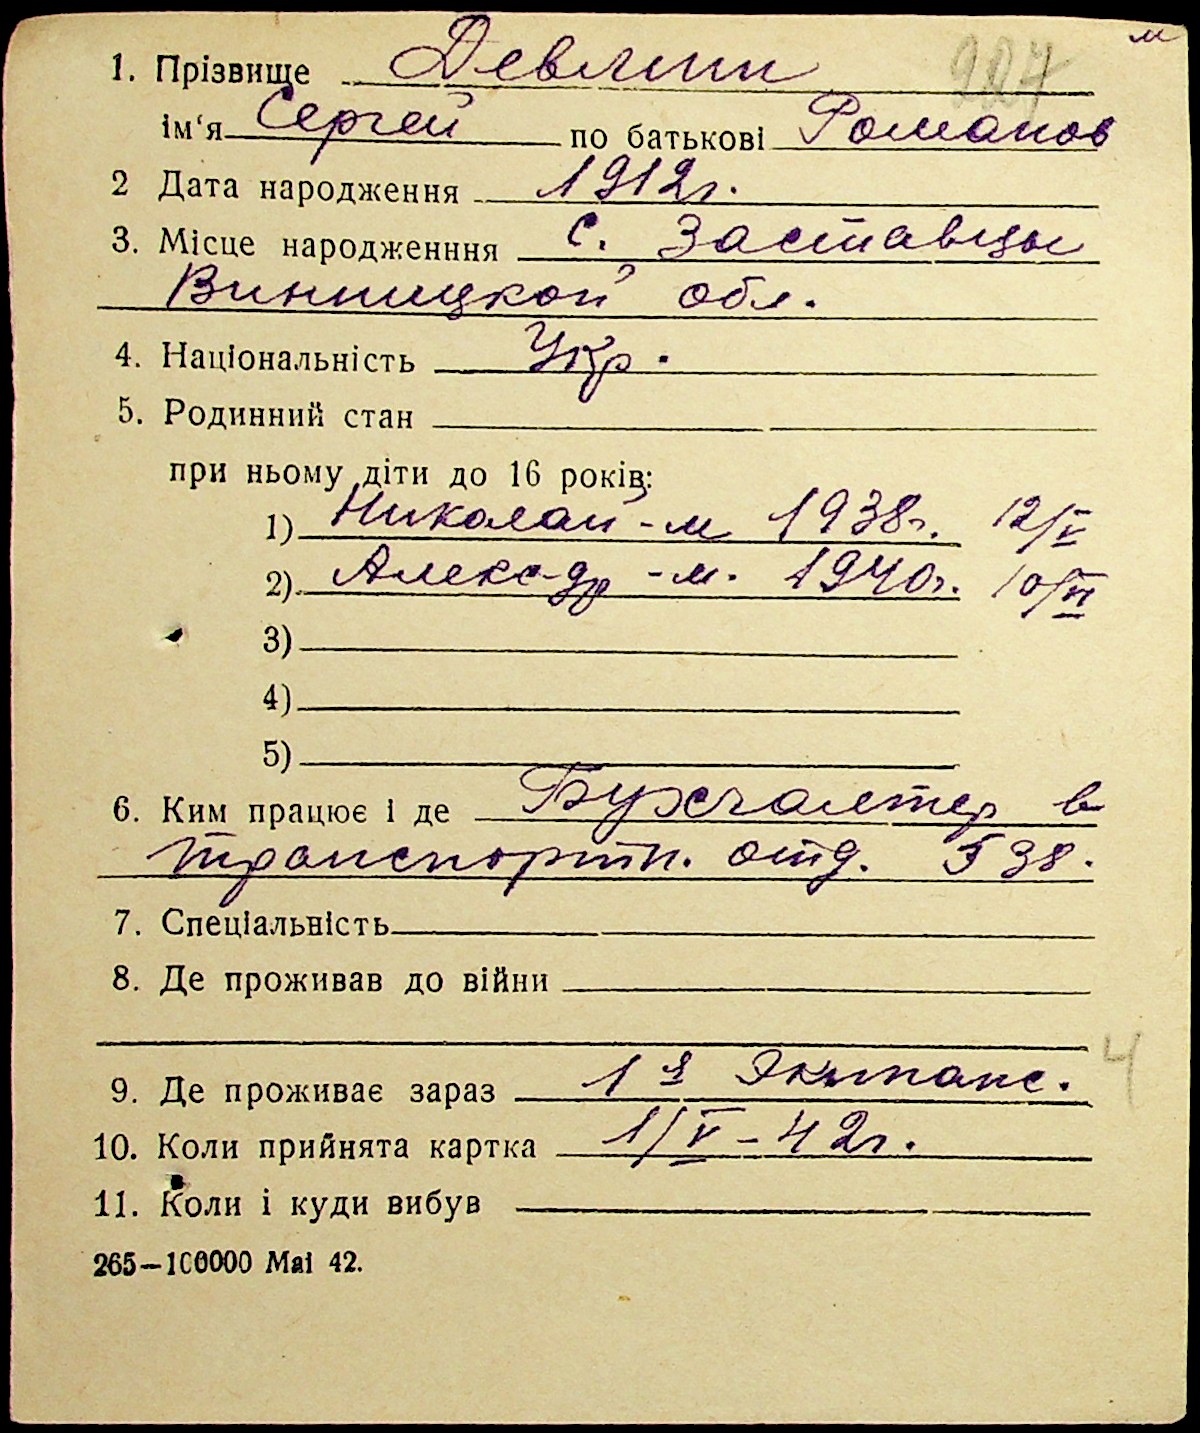 м
1. Прізвище Девлиш 227
ім‘я Сергей по батькові Романов
2 Дата народження 1912г.
3. Місце народженння с. Заставцы
Винницкой обл.
4. Національність Укр.
5. Родинний стан
при ньому діти до 16 років:
1) Николай - м 1938г. 12/V
2) Алекс-др - м. 1940г. 10/VI
3)
4)
5)
6. Ким працює і де Бухгалтер в
транспортн. отд. 38.
7. Спеціальність
8. Де проживав до війни
4
9. Де проживає зараз 1я Экипаж.
10. Коли прийнята картка 1/V - 42г.
11. Коли і куди вибув
265—100000 Mai 42.